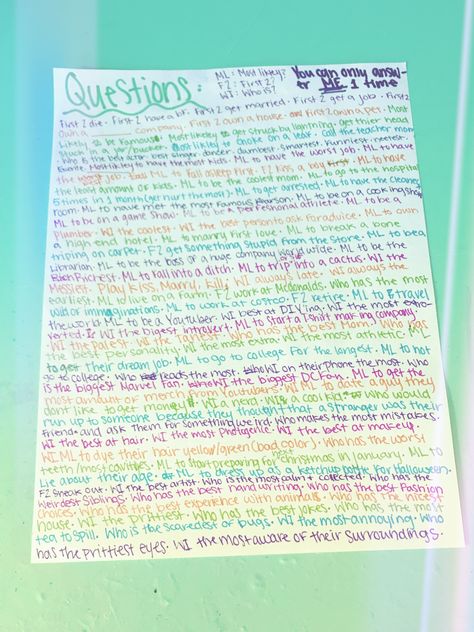 Questions:
ML: Most likely?
F2: First 2?
WI: Who is?
You can only answ-
er ME 1 time
First 2 die. First 2 have a bf. First 2 get married. First 2 get a job. First 2
own a ______ company. First 2 own a house. First 2 own a pet. Most
likely to be Famous. Most likely to get struck by lightning. get thier head
Most likely to choke on a
ML to have the most kids. ML to have the worst job. ML to have
job. ML to fall asleep First. F2 kiss a boy first. ML to have
the least amount of kids. ML to be the coolest mom. ML to go to the hospital
5 times in 1 month (or just the most). ML to get arrested. ML to have the cleanest
room. ML to have met the most Famous person. ML to be on a cooking show
ML to be on a game show. ML to be a perfesional athlete. ML to be a
Plumber. WI the coolest. WI the best person to ask for advice. ML to own
a high-end hotel. ML to marry first love. ML to break a bone
triping on carpet. F2 get something stupid from the store. ML to be a
Librarian. ML to be the boss of a huge company world wide. ML to be the
Richest. ML to fall into a ditch. ML to trip into a cactus. WI the
Messier. Play Kiss, Marry, Kill. WI always late. WI always the
earliest. ML to live on a farm. F2 work at Mcdonalds. Who has the most
wild imaginations. ML to work at costco. F2 retire. ML to travel
the world. ML to be a Youtuber. WI best at DIYing. WI the most extro-
verted. WI the biggest introvert. ML to start a fanfic making company.
WI the best Mom. Who has
the best personality. WI the most extra. WI the most athletic. ML
to get their dream job. ML to go to college for the longest. ML to not
go to college. Who reads the most. WI on their phone the most. Who
is the biggest Marvel Fan. WI the biggest DC Fan. ML to get the
most amount of merch from Youtubers. WI ML to date a guy they
dont like to get money $. WI a cool kid. Who would
run up to someone because they thought that a stranger was their
friend and ask them for something weird. Who makes the most mistakes.
WI the best at hair. WI the most Photogenic. WI the best at makeup.
WI ML to dye their hair yellow/green (bad color). Who has the worst
teeth/most cavities. ML to start preparing for christmas in january. ML to
Lie about their age. ML to dress up as a ketchup bottle for Halloween.
F2 sneak out. WI the best artist. Who is the most calm + collected. Who has the
Weirdest siblings. Who has the best handwriting. Who has the best Fashion
choices. Who has the best experience with animals. Who has the nicest
house. WI the prettiest. Who has the best jokes. Who has the most
tea to spill. Who is the scaredest of bugs. WI the most annoying. Who
has the prittiest eyes. WI the most aware of their surroundings.